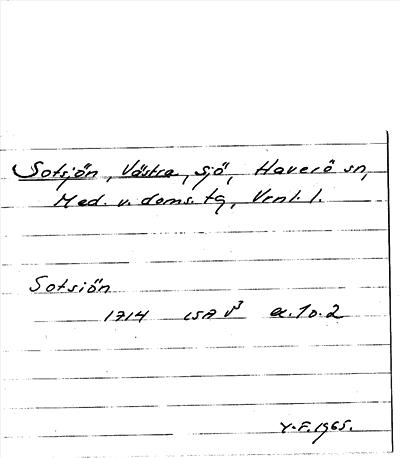 Sotsjön, Västra, sjö, Haverö sn,
Med. v. doms. tg, Vrnl. l.
Sotsiön
1714 LSA V3 a. 1 o. 2
Y.F. 1965.